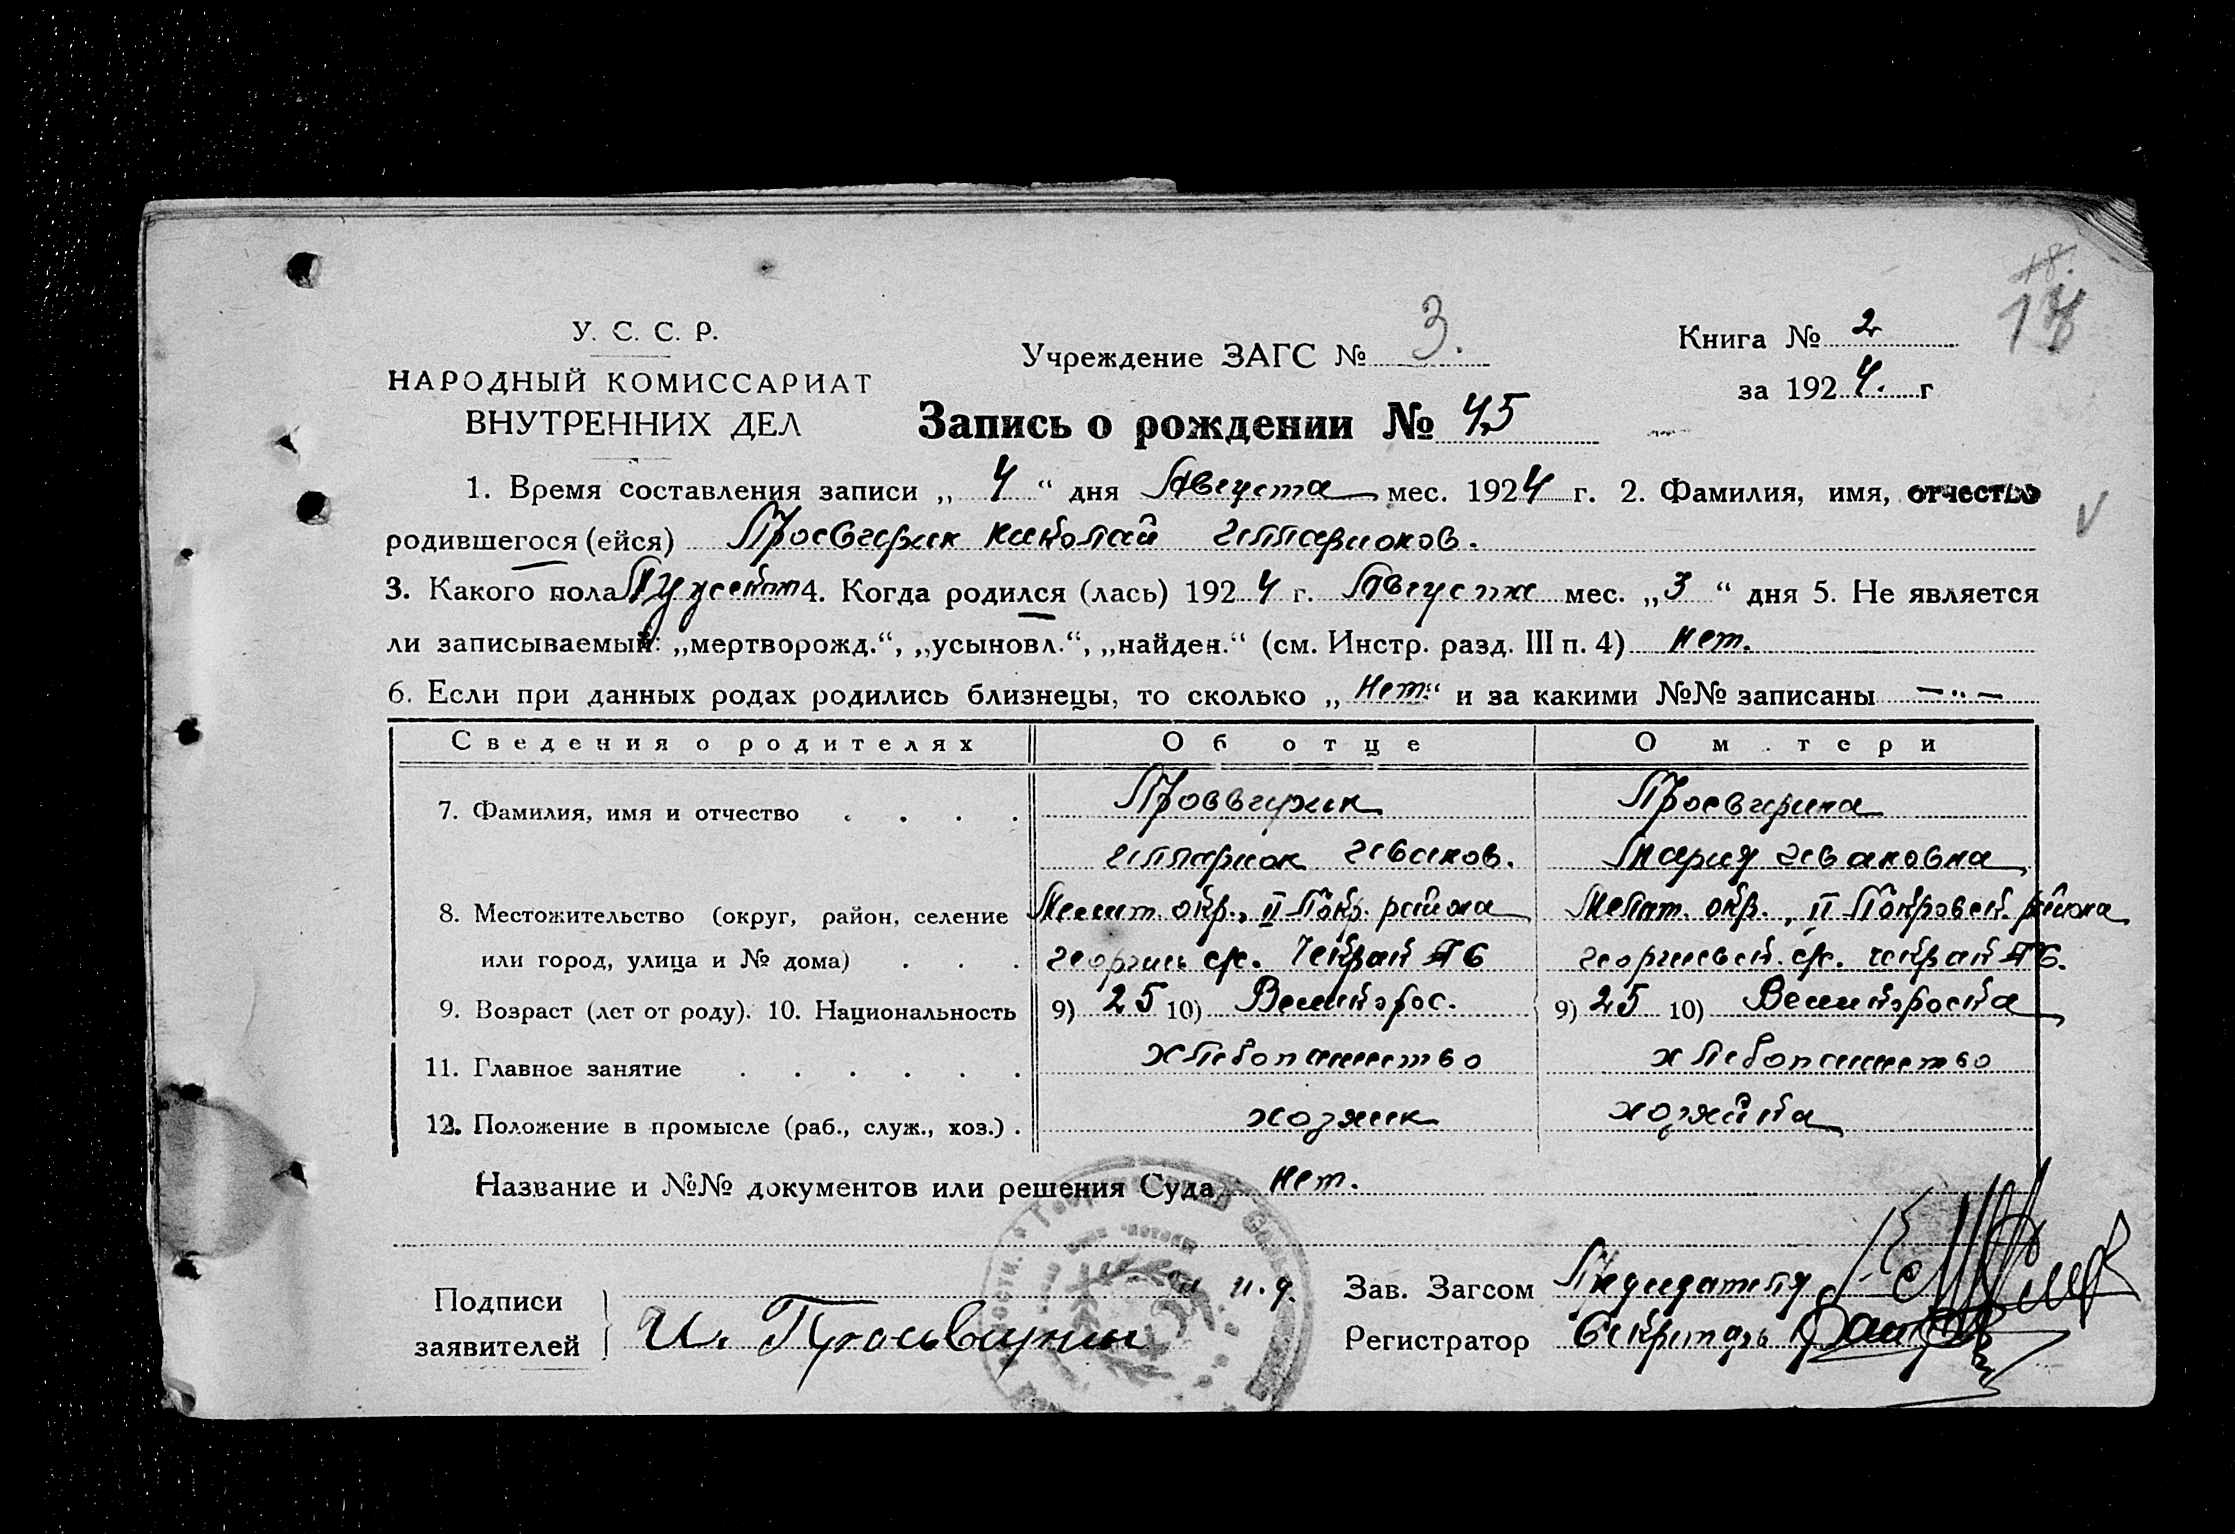 18.
У. С. С. Р.
НАРОДНЫЙ КОМИССАРИАТ
ВНУТРЕННИХ ДЕЛ
Учреждение ЗАГС № 3.
Книга № 2
за 1924. г
Запись о рождении № 45
1. Время составления записи „ 4 “ дня Августа мес. 1924 г. 2. Фамилия, имя, отчество
родившегося (ейся) Просвирин Николай Илларионов.
3. Какого пола Мужеском 4. Когда родился (лась) 1924 г. Августа мес. „3 “ дня 5. Не является
ли записываемый: „мертворожд.“, „усыновл.“, „найден.“ (см. Инстр. разд. III п. 4) нет.
6. Если при данных родах родились близнецы, то сколько „ Нет.“ и за какими №№ записаны — „ —
Сведения о родителях Об отце О м.тери
7. Фамилия, имя и отчество . . . . Просвирин Просвирина
Илларион Иванов. Мария Ивановна
8. Местожительство (округ, район, селение Мелит. окр., II Покр. района Мелит. окр., II Покровск. района
или город, улица и № дома) . . . Георгиев с/с. Чекрак №6 Георгиевск. с/с. Чекрак №6.
9. Возраст (лет от роду). 10. Национальность 9) 25 10) Великорос. 9) 25 10) Великороска
11. Главное занятие . . . . . . хлебопашество хлебопашество
12. Положение в промысле (раб., служ., хоз.) . хозяин хозяйка
Название и №№ документов или решения Суда нет.
Подписи
заявителей
И. Просвирин
Зав. Загсом Председатель
Регистратор Секретарь